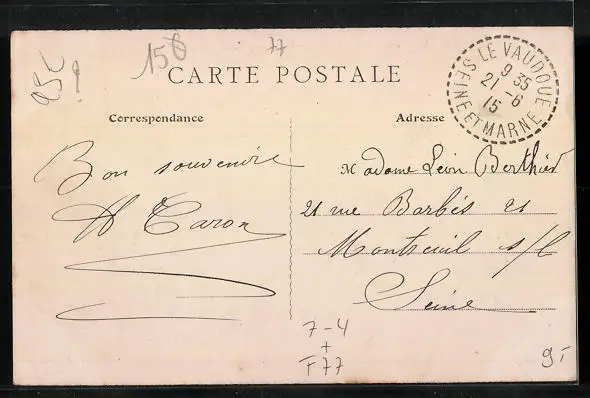 15
77
CARTE POSTALE
LE VAUDOUE
9 35
21 -6
15
SEINE ET MARNE
Correspondance
Bon souvenir
Taron
Adresse
Madame Léon Berthier
21 rue Barbès 21
Montreuil s/
Seine
7-4
+
F77
9.-